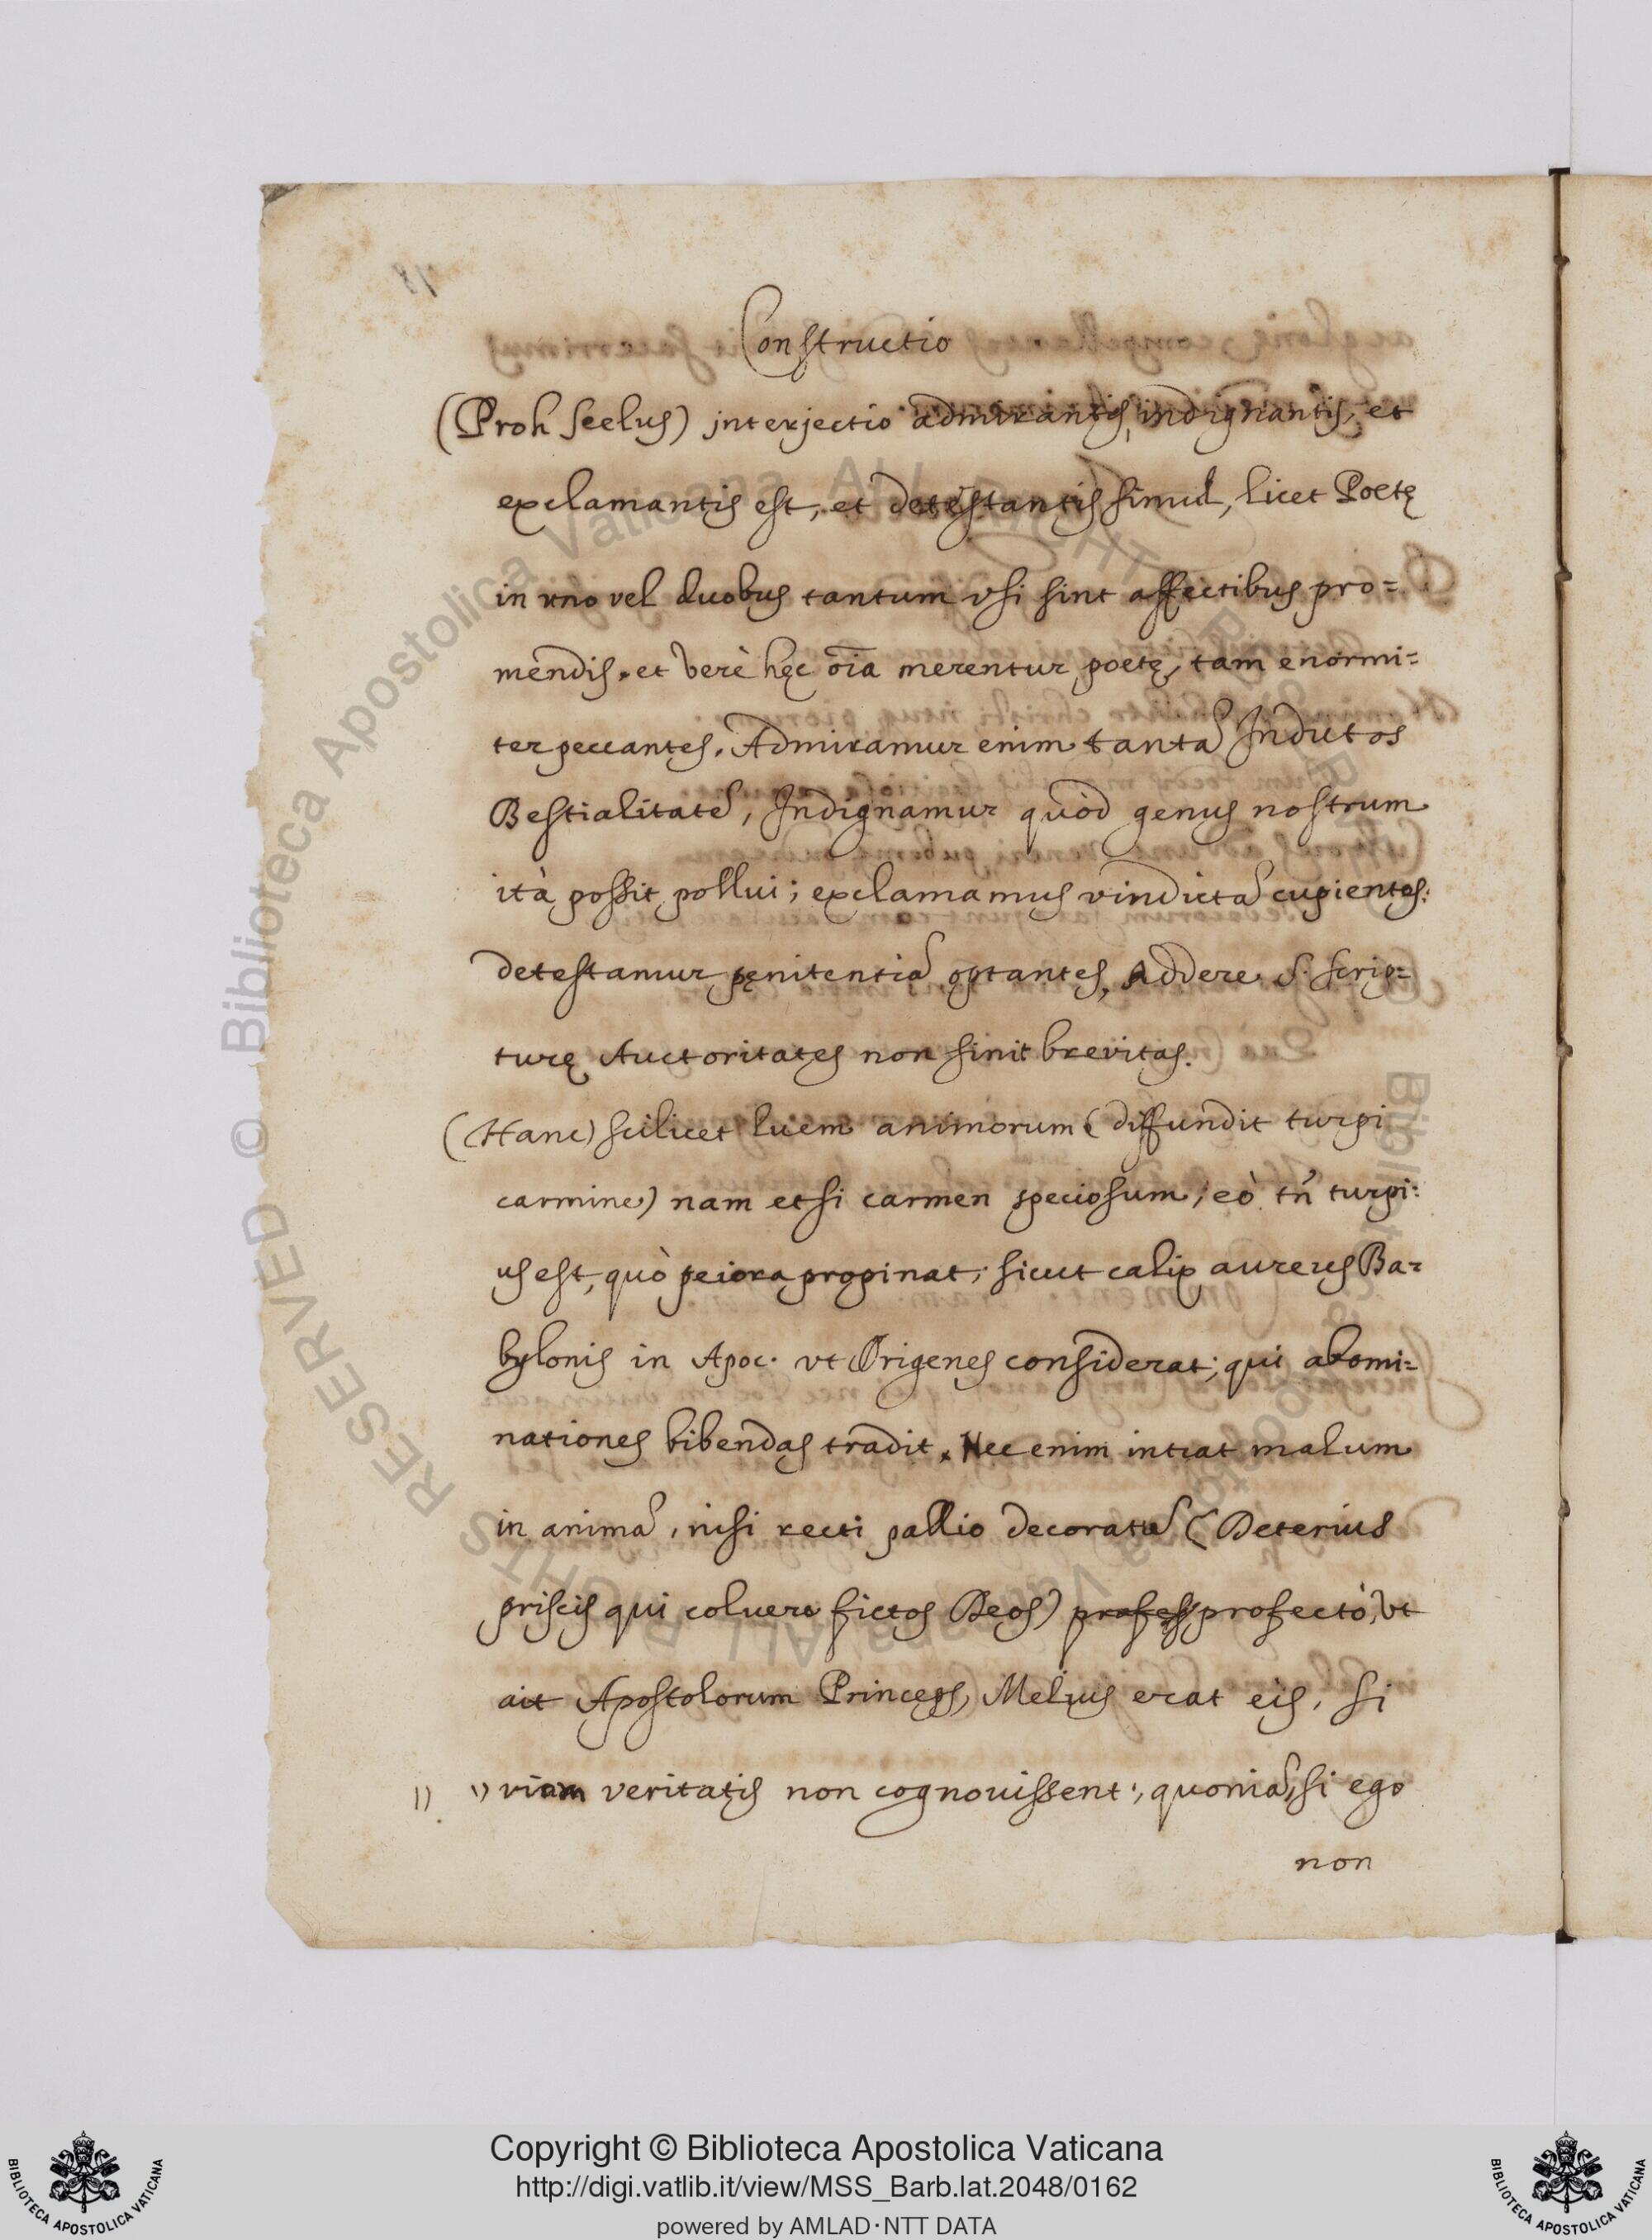 Constructio
(Proh scelus) interjectio admirantis, indignantis, et
exclamantis est, et detestantis simul, licet Poetę
in vno vel duobus tantum vsi sint affectibus pro=
mendis. et verè hęc oĩa merentur poetę, tam enormi=
ter peccantes. Admiramur enim tantã Indutos
Bestialitatẽ, Indignamur quòd genus nostrum
ità possit pollui; exclamamus vindictã cupientes:
detestamur pęnitentiã optantes, Addere S. Scrip=
turę Auctoritates non sinit brevitas.
(Hanc) scilicet luem animorum (diffundit turpi
carmine) nam etsi carmen speciosum, eò tñ turpi=
us est, quò peiora propinat; sicut calix aureus Ba=
bylonis in Apoc. vt Origenes considerat; qui abomi=
nationes bibendas tradit. Nec enim intrat malum
in animã, nisi recti pallio decoratũ (Deterius
priscis qui coluere fictos Deos) profess profectò, vt
ait Apostolorum Princeps, Melius erat eis, si
" " viam veritatis non cognouissent; quoniã, si ego
non
© Biblioteca Apostolica Vaticana ALL RIGHTS RESERVED
Copyright © Biblioteca Apostolica Vaticana
http://digi.vatlib.it/view/MSS_Barb.lat.2048/0162
powered by AMLAD·NTT DATA
BIBLIOTECA APOSTOLICA VATICANA
BIBLIOTECA APOSTOLICA VATICANA